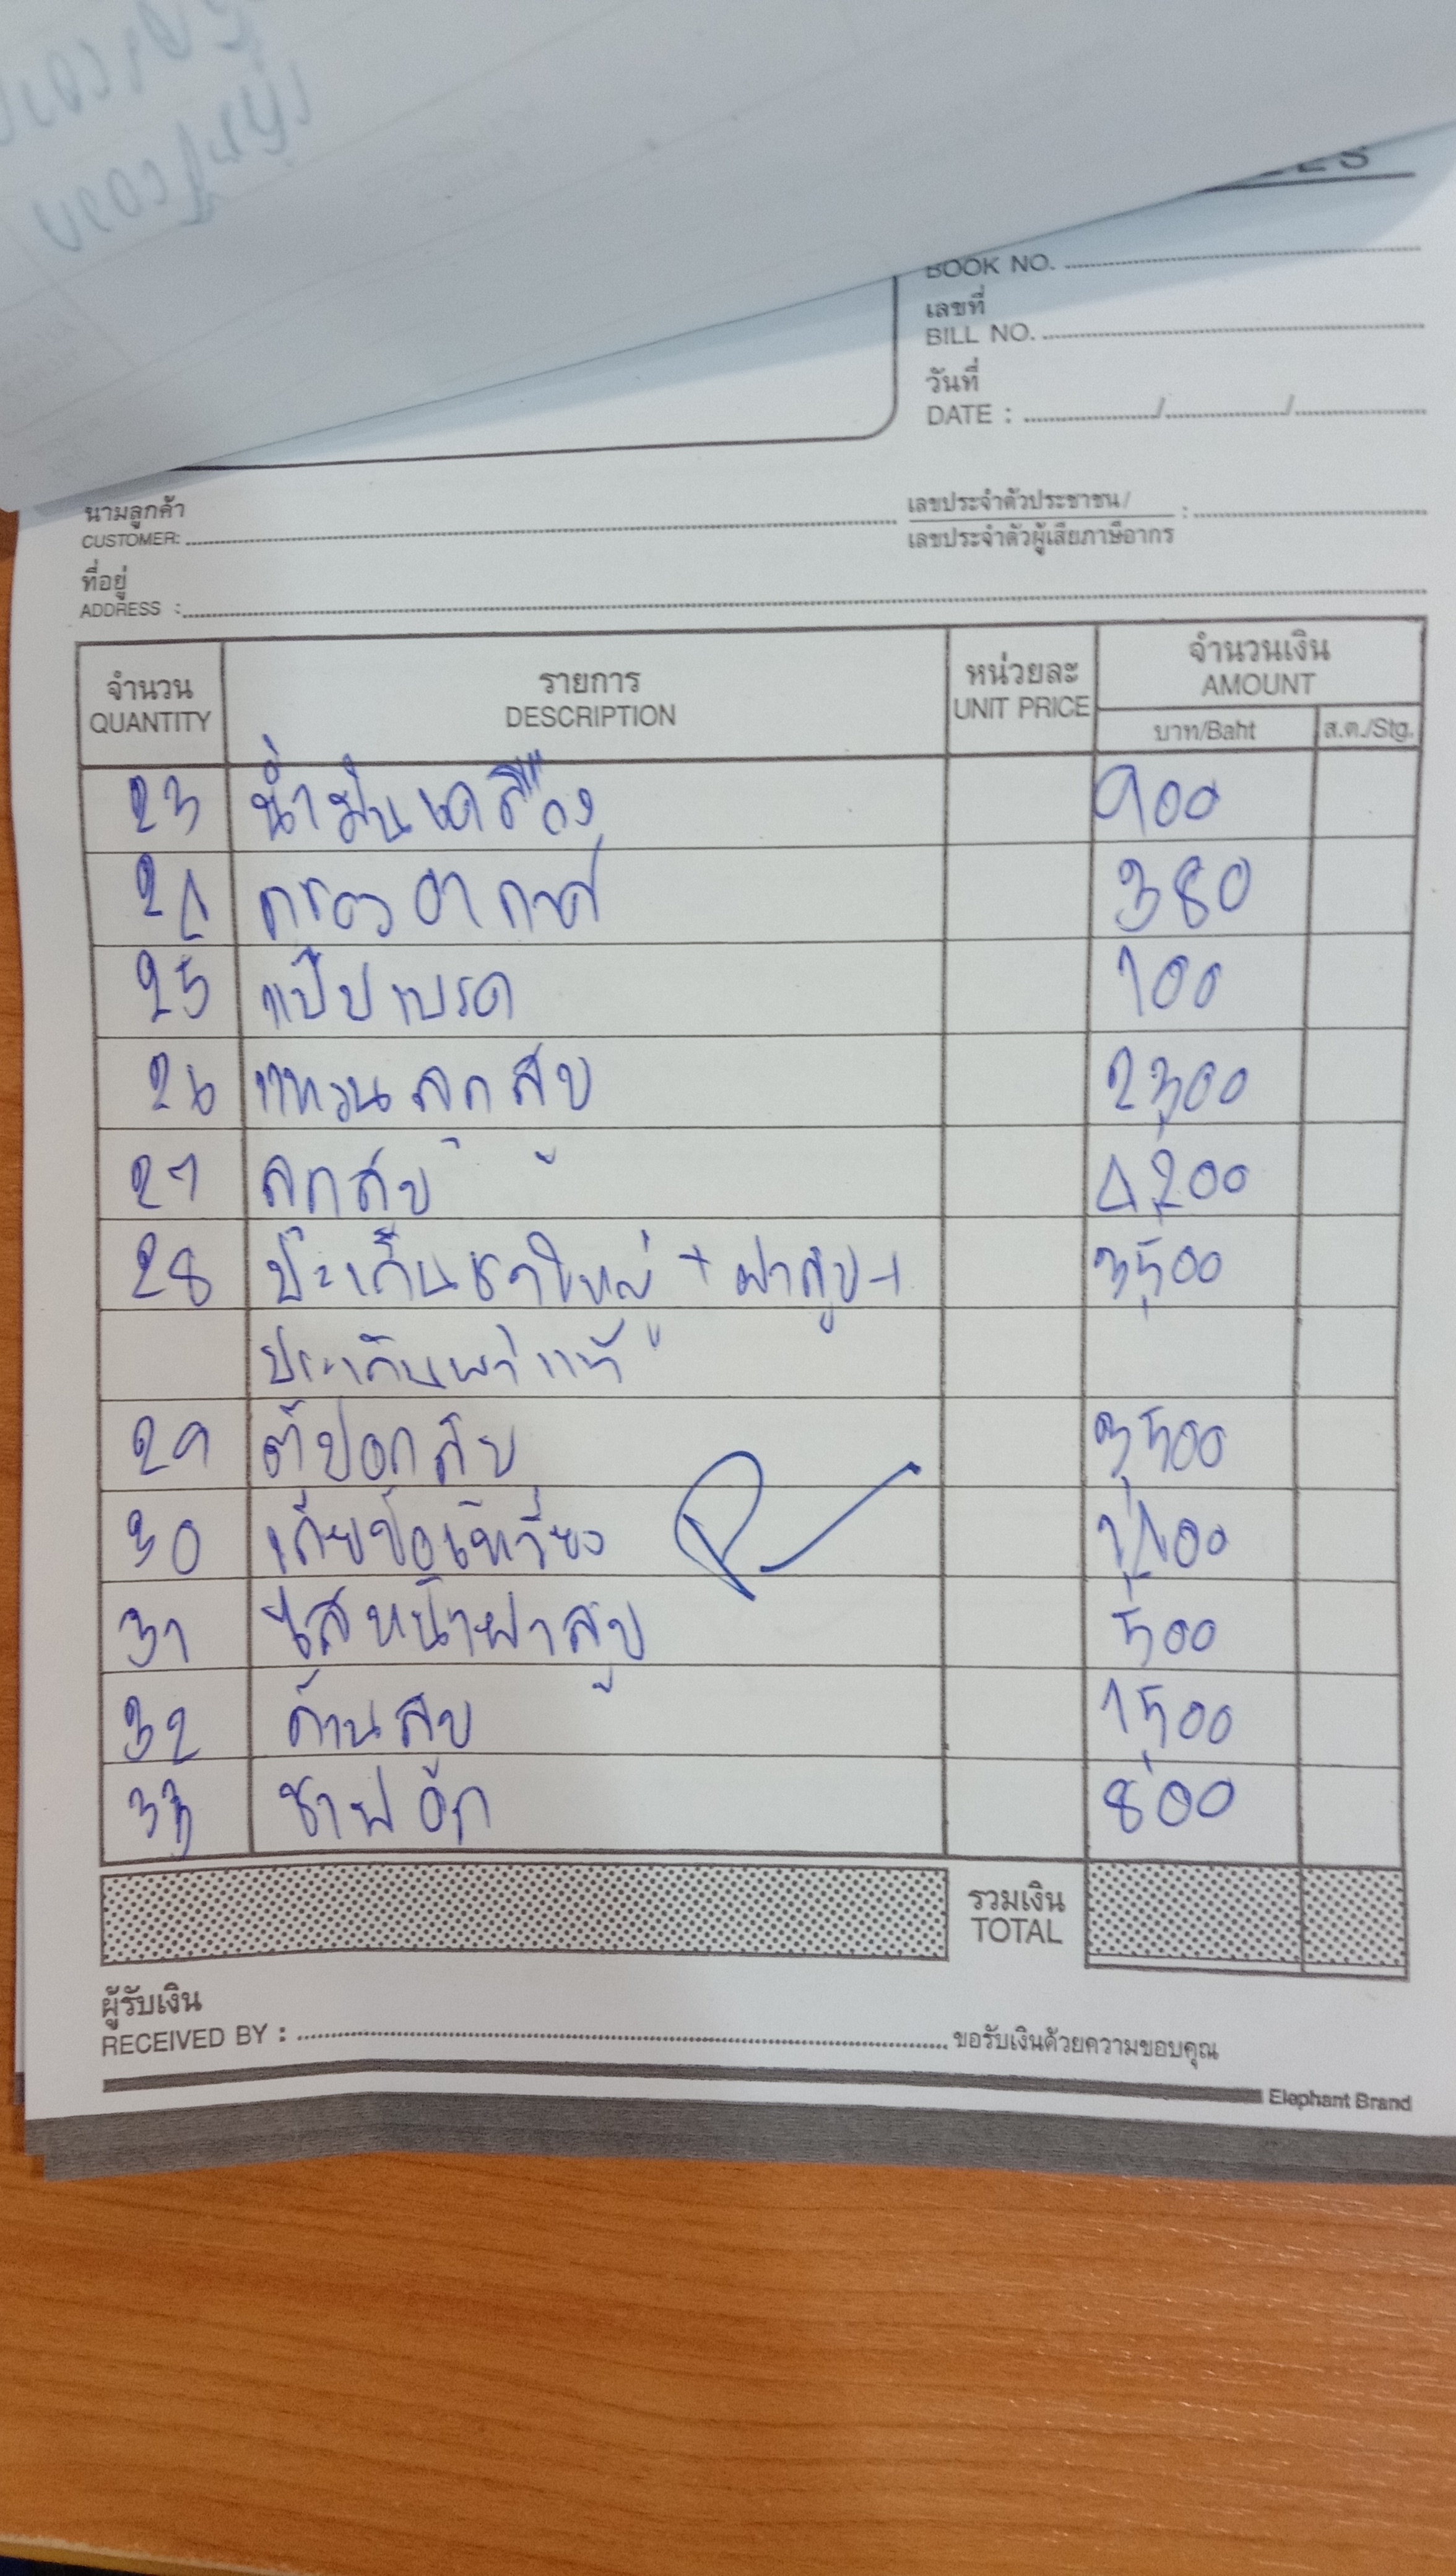 BOOK NO.
เลขที่
BILL NO.
วันที่
DATE : / /
นามลูกค้า
CUSTOMER:
เลขประจำตัวประชาชน/
เลขประจำตัวผู้เสียภาษีอากร :
ที่อยู่
ADDRESS :
จำนวน รายการ หน่วยละ จำนวนเงิน
QUANTITY DESCRIPTION UNIT PRICE AMOUNT
บาท/Baht ส.ต./Stg.
23 น้ำมันเครื่อง 900
24 กรองอากาศ 380
25 แป๊ปเบรค 100
26 แหวนลูกสูบ 2300
27 ลูกสูบ 4200
28 ประเก็นชุดใหญ่ + ฝาสูบ-1 3500
ประเก็นพาแท้
29 ตีปอกสูบ 3500
30 เกียข้อเหวี่ยง 1400
31 ไสหน้าฝาสูบ 500
32 ก้านสูบ 1500
33 ชาฟอ๊ก 800
รวมเงิน
TOTAL
ผู้รับเงิน
RECEIVED BY : ขอรับเงินด้วยความขอบคุณ
Elephant Brand